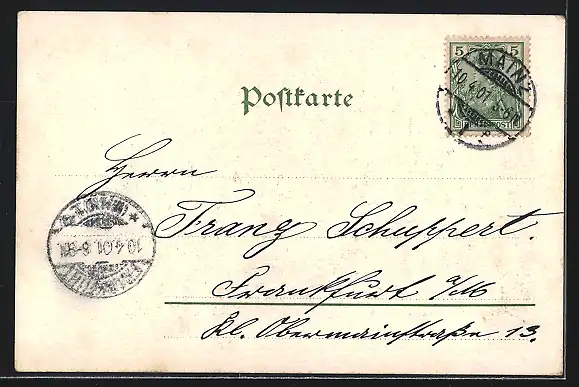 5 5
MAINZ
10.4.01. 5-6N
Postkarte
Herrn
Franz Schuppert.
10.4.01. 8-9N.
Frankfurt a/M
Kl. Obermainstraße 13.